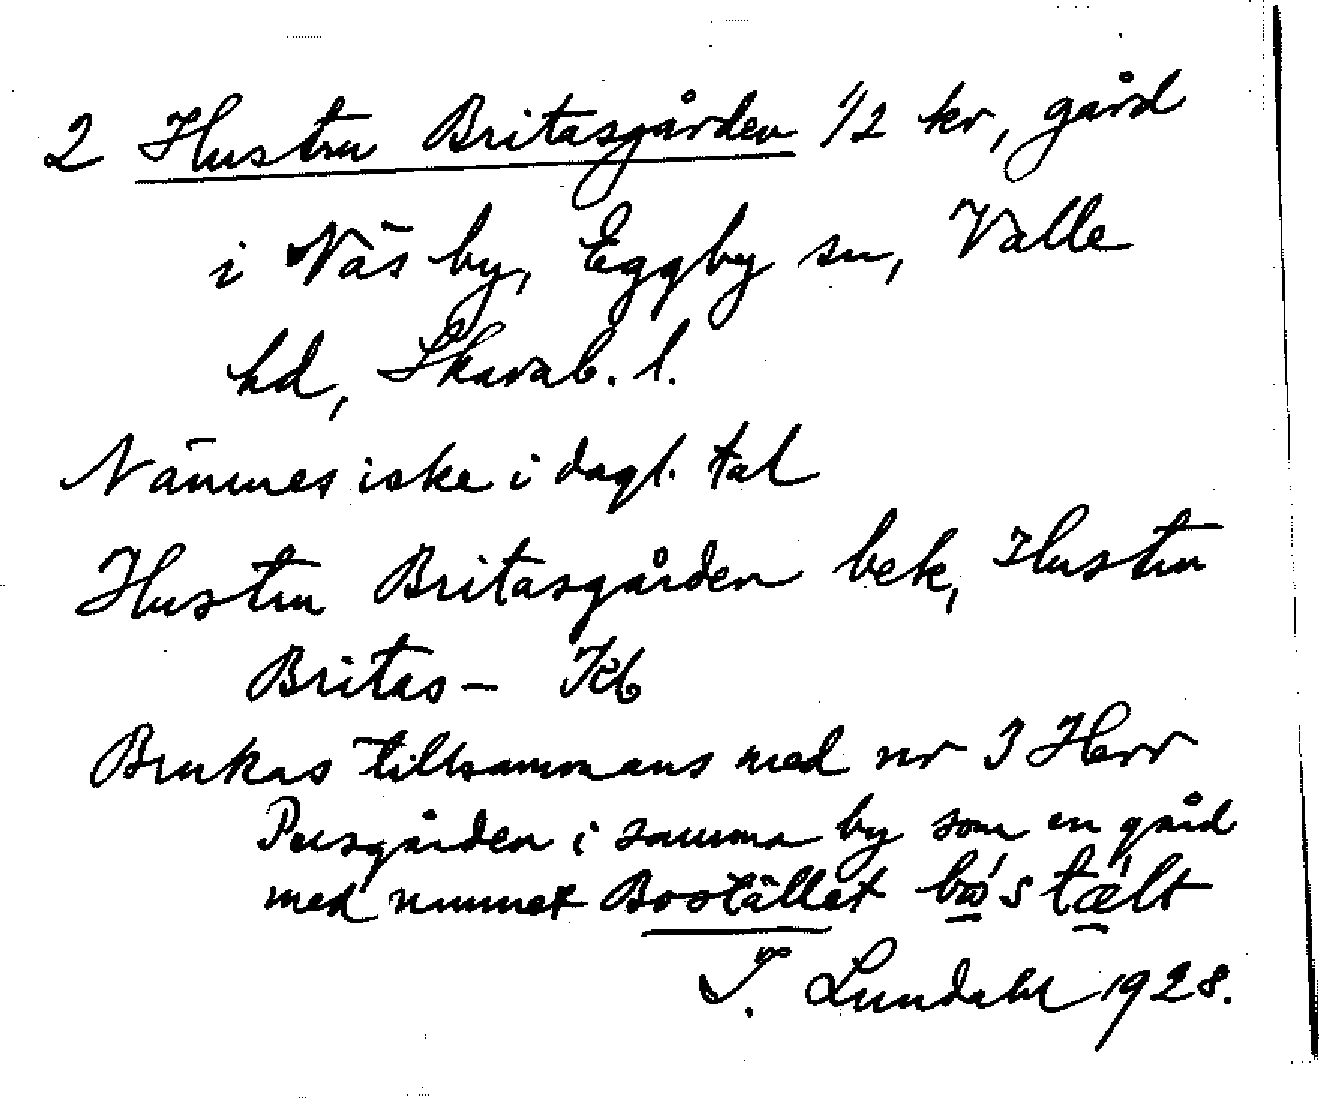 2 Hustru Britasgården 1/2 kr, gård
i Näs by, Eggby sn, Valle
hd, Skarab. l.
Nämnes icke i dagl. tal
Hustru Britasgården bek, Hustru
Britas- Kb
Brukas tillsammans med nr 3 Herr
Persgården i samma by som en gård
med numret Bostället bω´stä´lt
I. Lundahl 1928.